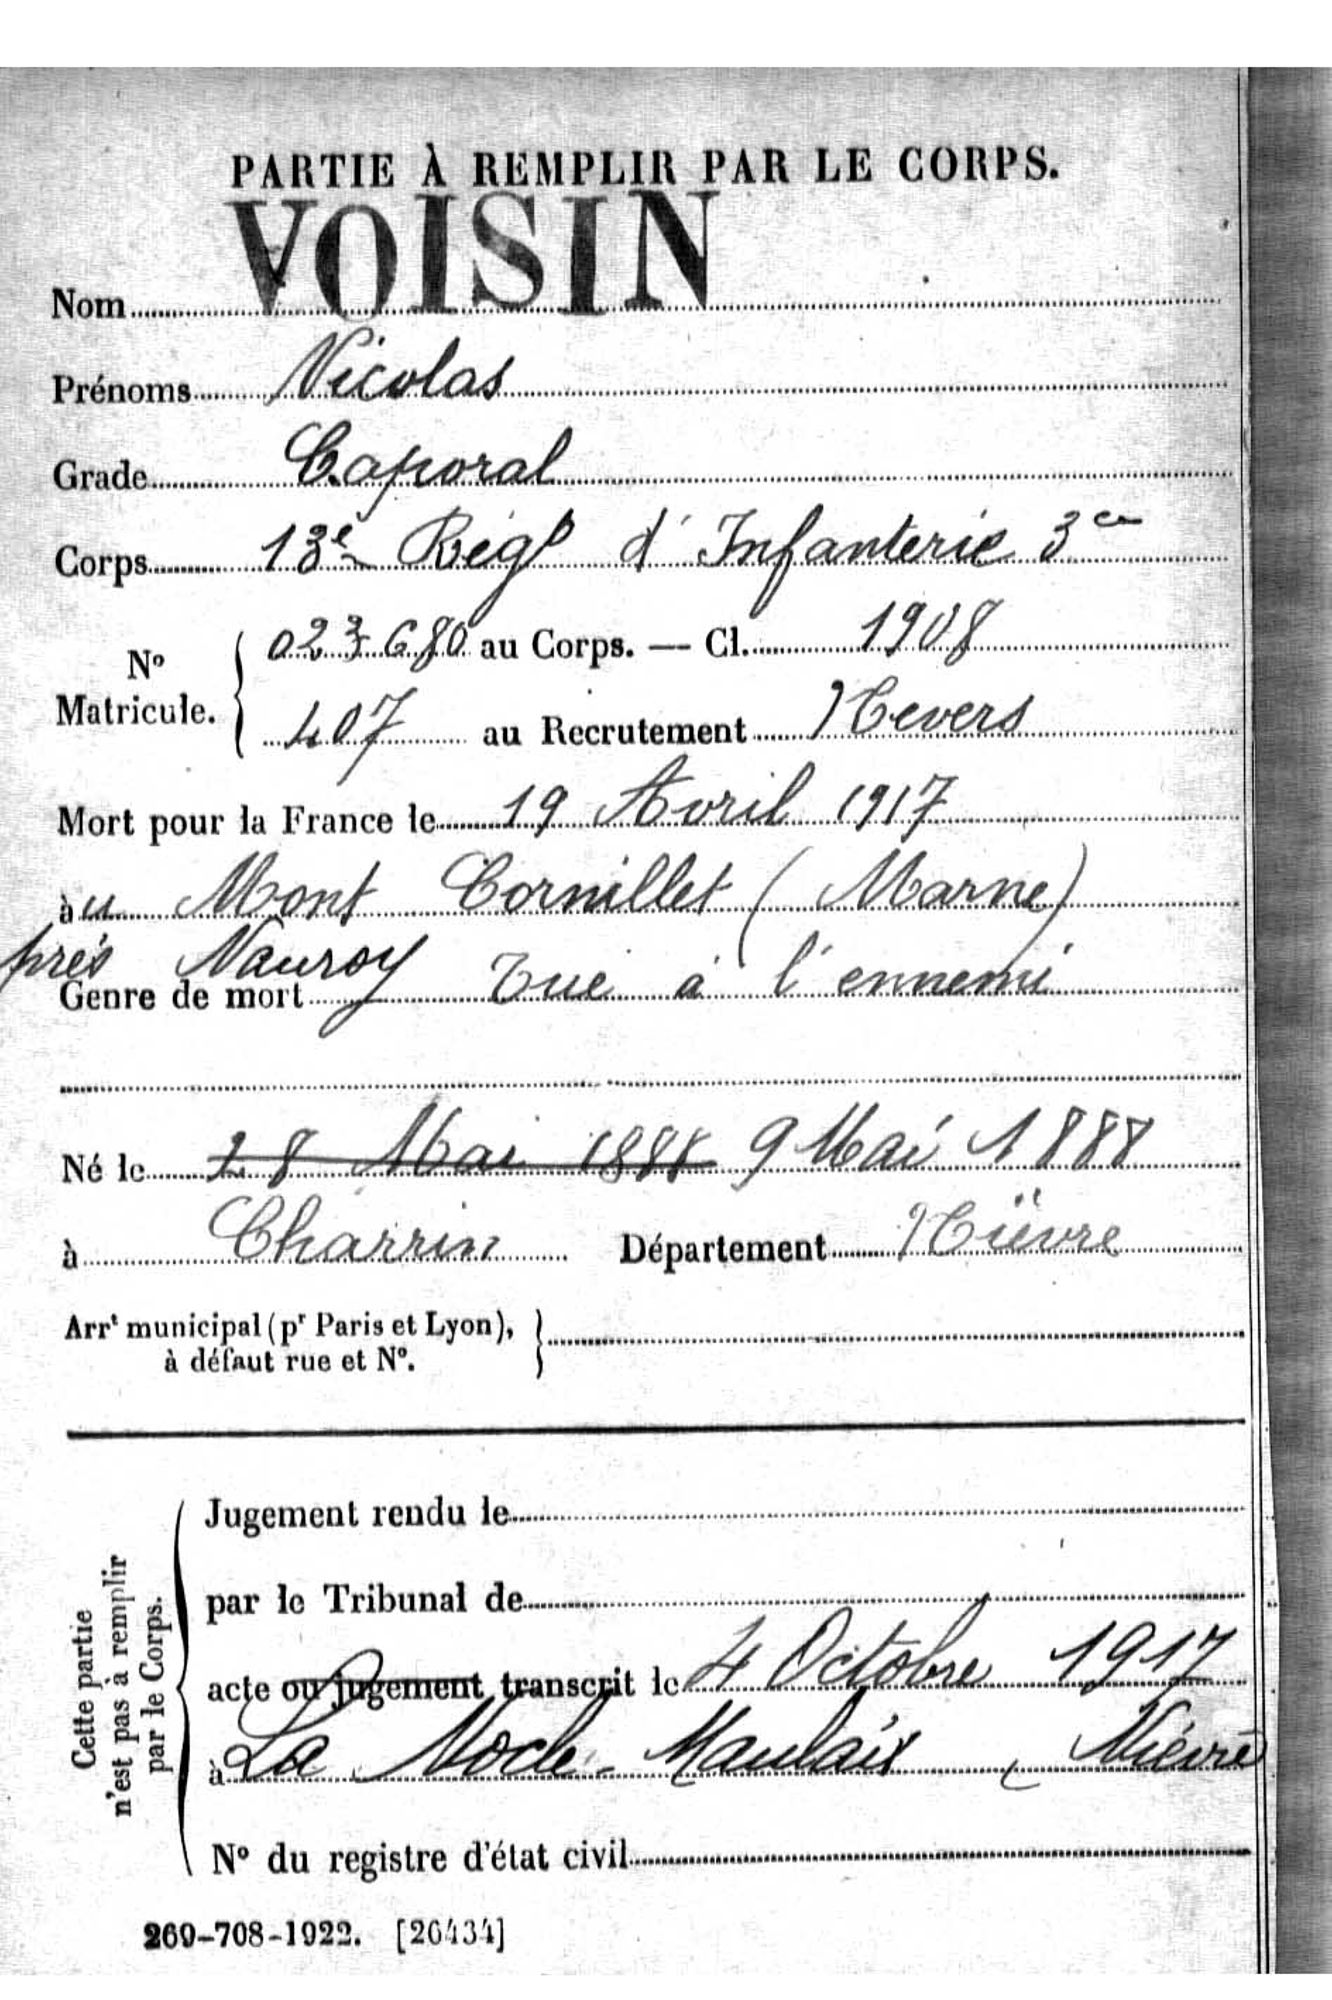 PARTIE À REMPLIR PAR LE CORPS.
Nom VOISIN
Prénoms Nicolas
Grade Caporal
Corps 13e Régt d'Infanterie 3ce
No Matricule. 023680 au Corps. — Cl. 1908
407 au Recrutement Nevers
Mort pour la France le 19 Avril 1917
àu Mont Cornillet (Marne)
près Nauroy
Genre de mort Tué à l'ennemi
Né le 28 Mai 1888 9 Mai 1888
à Charrin Département Nièvre
Arrt municipal (pr Paris et Lyon),
à défaut rue et No.
Cette partie
n'est pas à remplir
par le Corps.
Jugement rendu le
par le Tribunal de
acte ou jugement transcrit le 4 Octobre 1917
à La Nocle-Maulaix (Nièvre
No du registre d'état civil
269-708-1922. [26434]